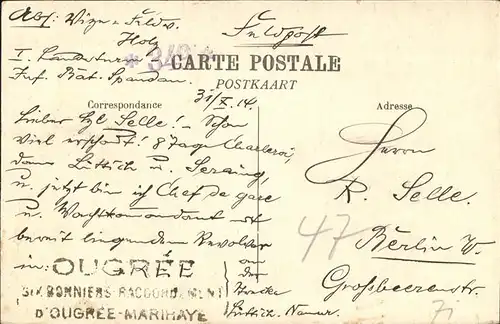 Abs: Vize-Feldw.
Holz
Feldpost
I. Landsturm-
Inf. Bat. Spandau.
CARTE POSTALE
POSTKAART
31/X.14.
Correspondance
Adresse
Lieber Selle! - Schon
viel erschaut! 8 Tage Charleroi,
dann Lüttich u. Seraing,
u. jetzt bin ich Chef de gare
u. Wachtkommandant mit
bereit liegendem Revolver
in:
OUGRÉE
CHARBONNIERS-RACCORDEMENT
D'OUGRÉE-MARIHAYE
an
der
Strecke
Lüttich-Namur.
Herrn
R. Selle.
47
Berlin W.
Grossbeerenstr.
71